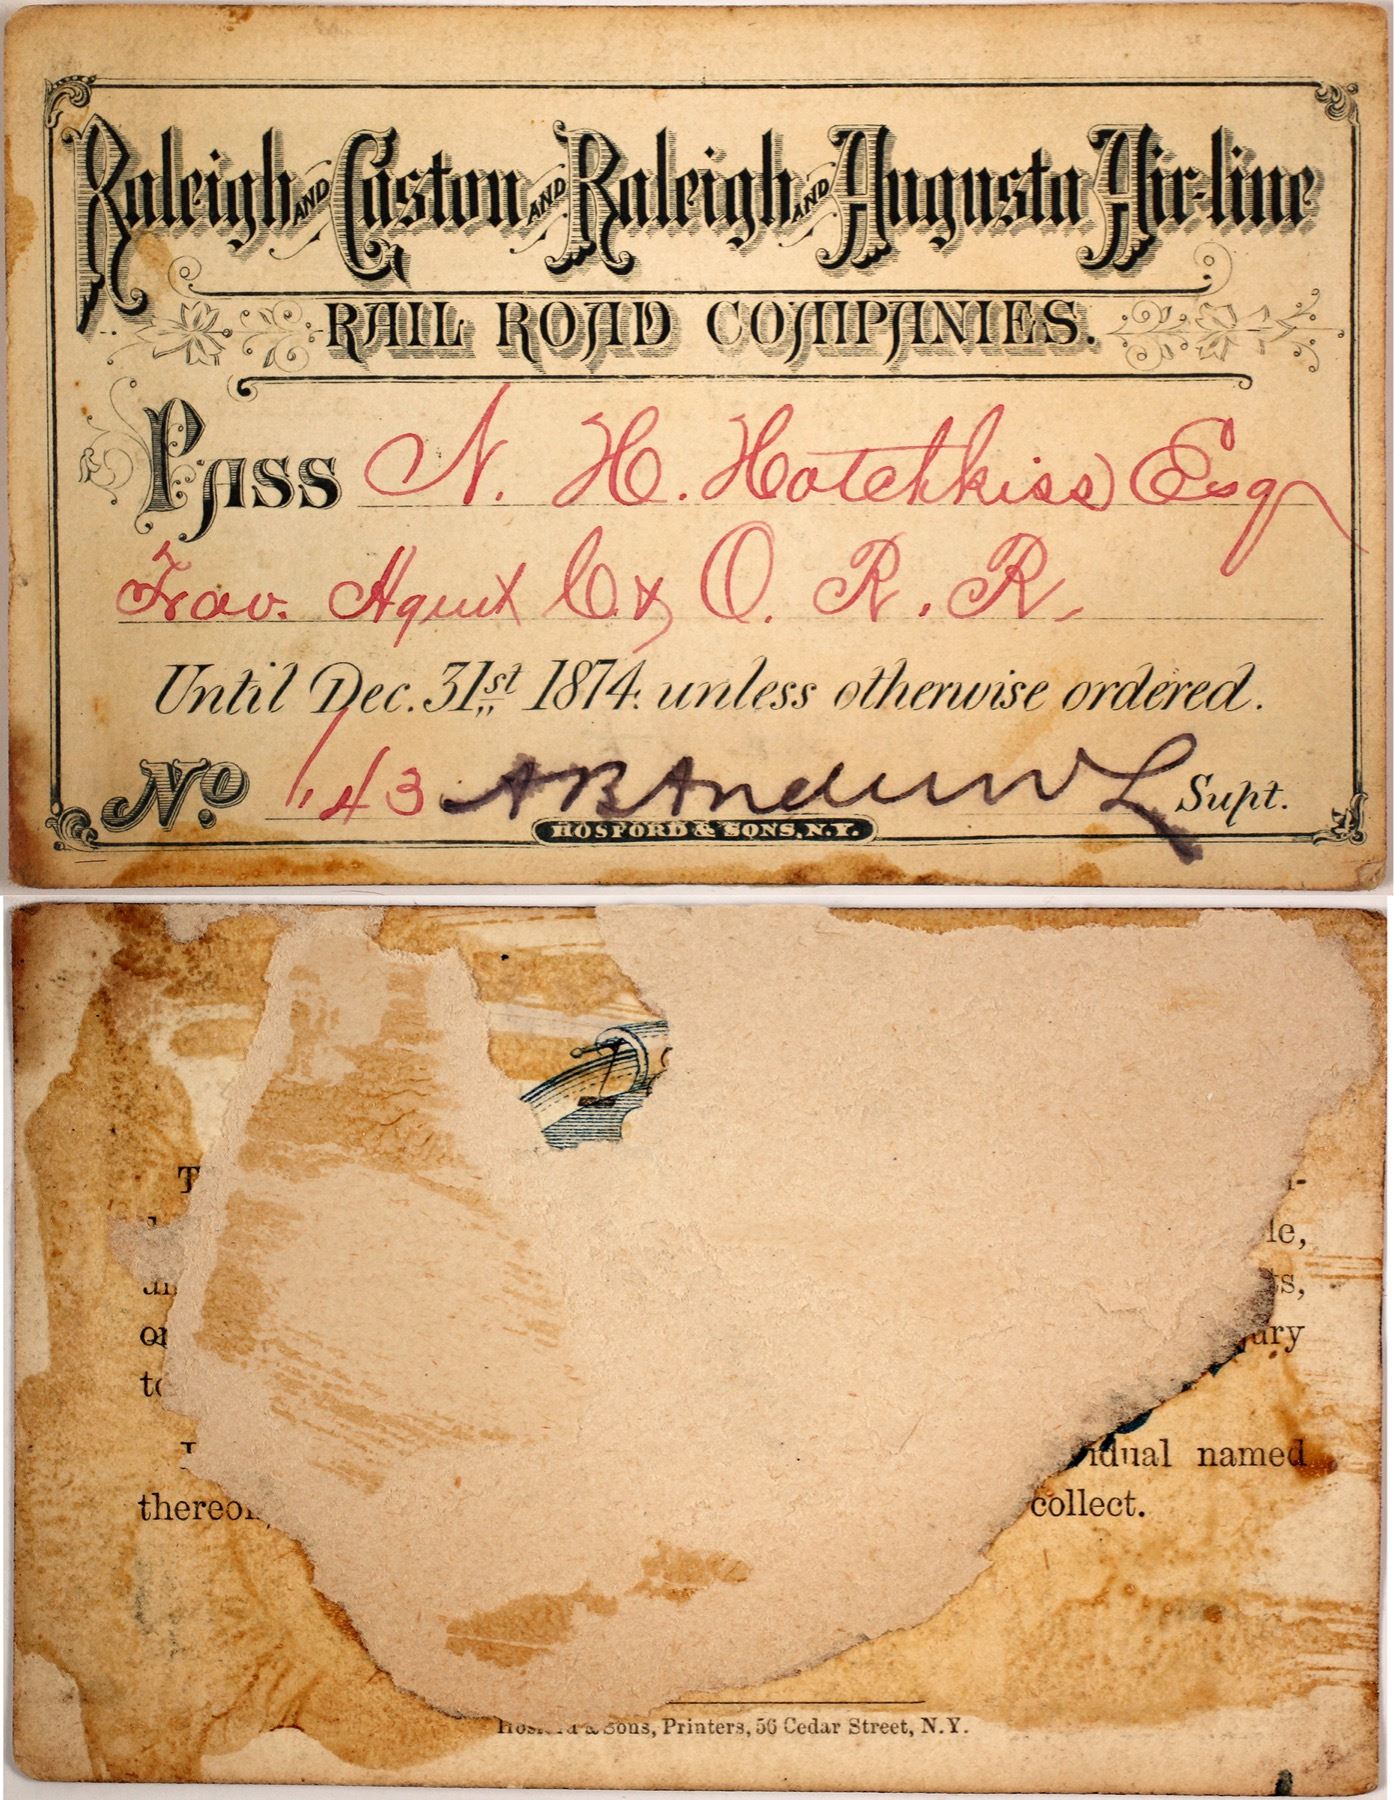 Raleigh AND Gaston AND Raleigh AND Augusta Air-line
RAIL ROAD COMPANIES.
PASS N. H. Hotchkiss Esq
Trav. Agent C. & O. R. R.
Until Dec. 31st 1874. unless otherwise ordered.
No 143 A B Andrews Supt.
HOSFORD & SONS, N.Y.
named
collect.
Sons, Printers, 56 Cedar Street, N.Y.